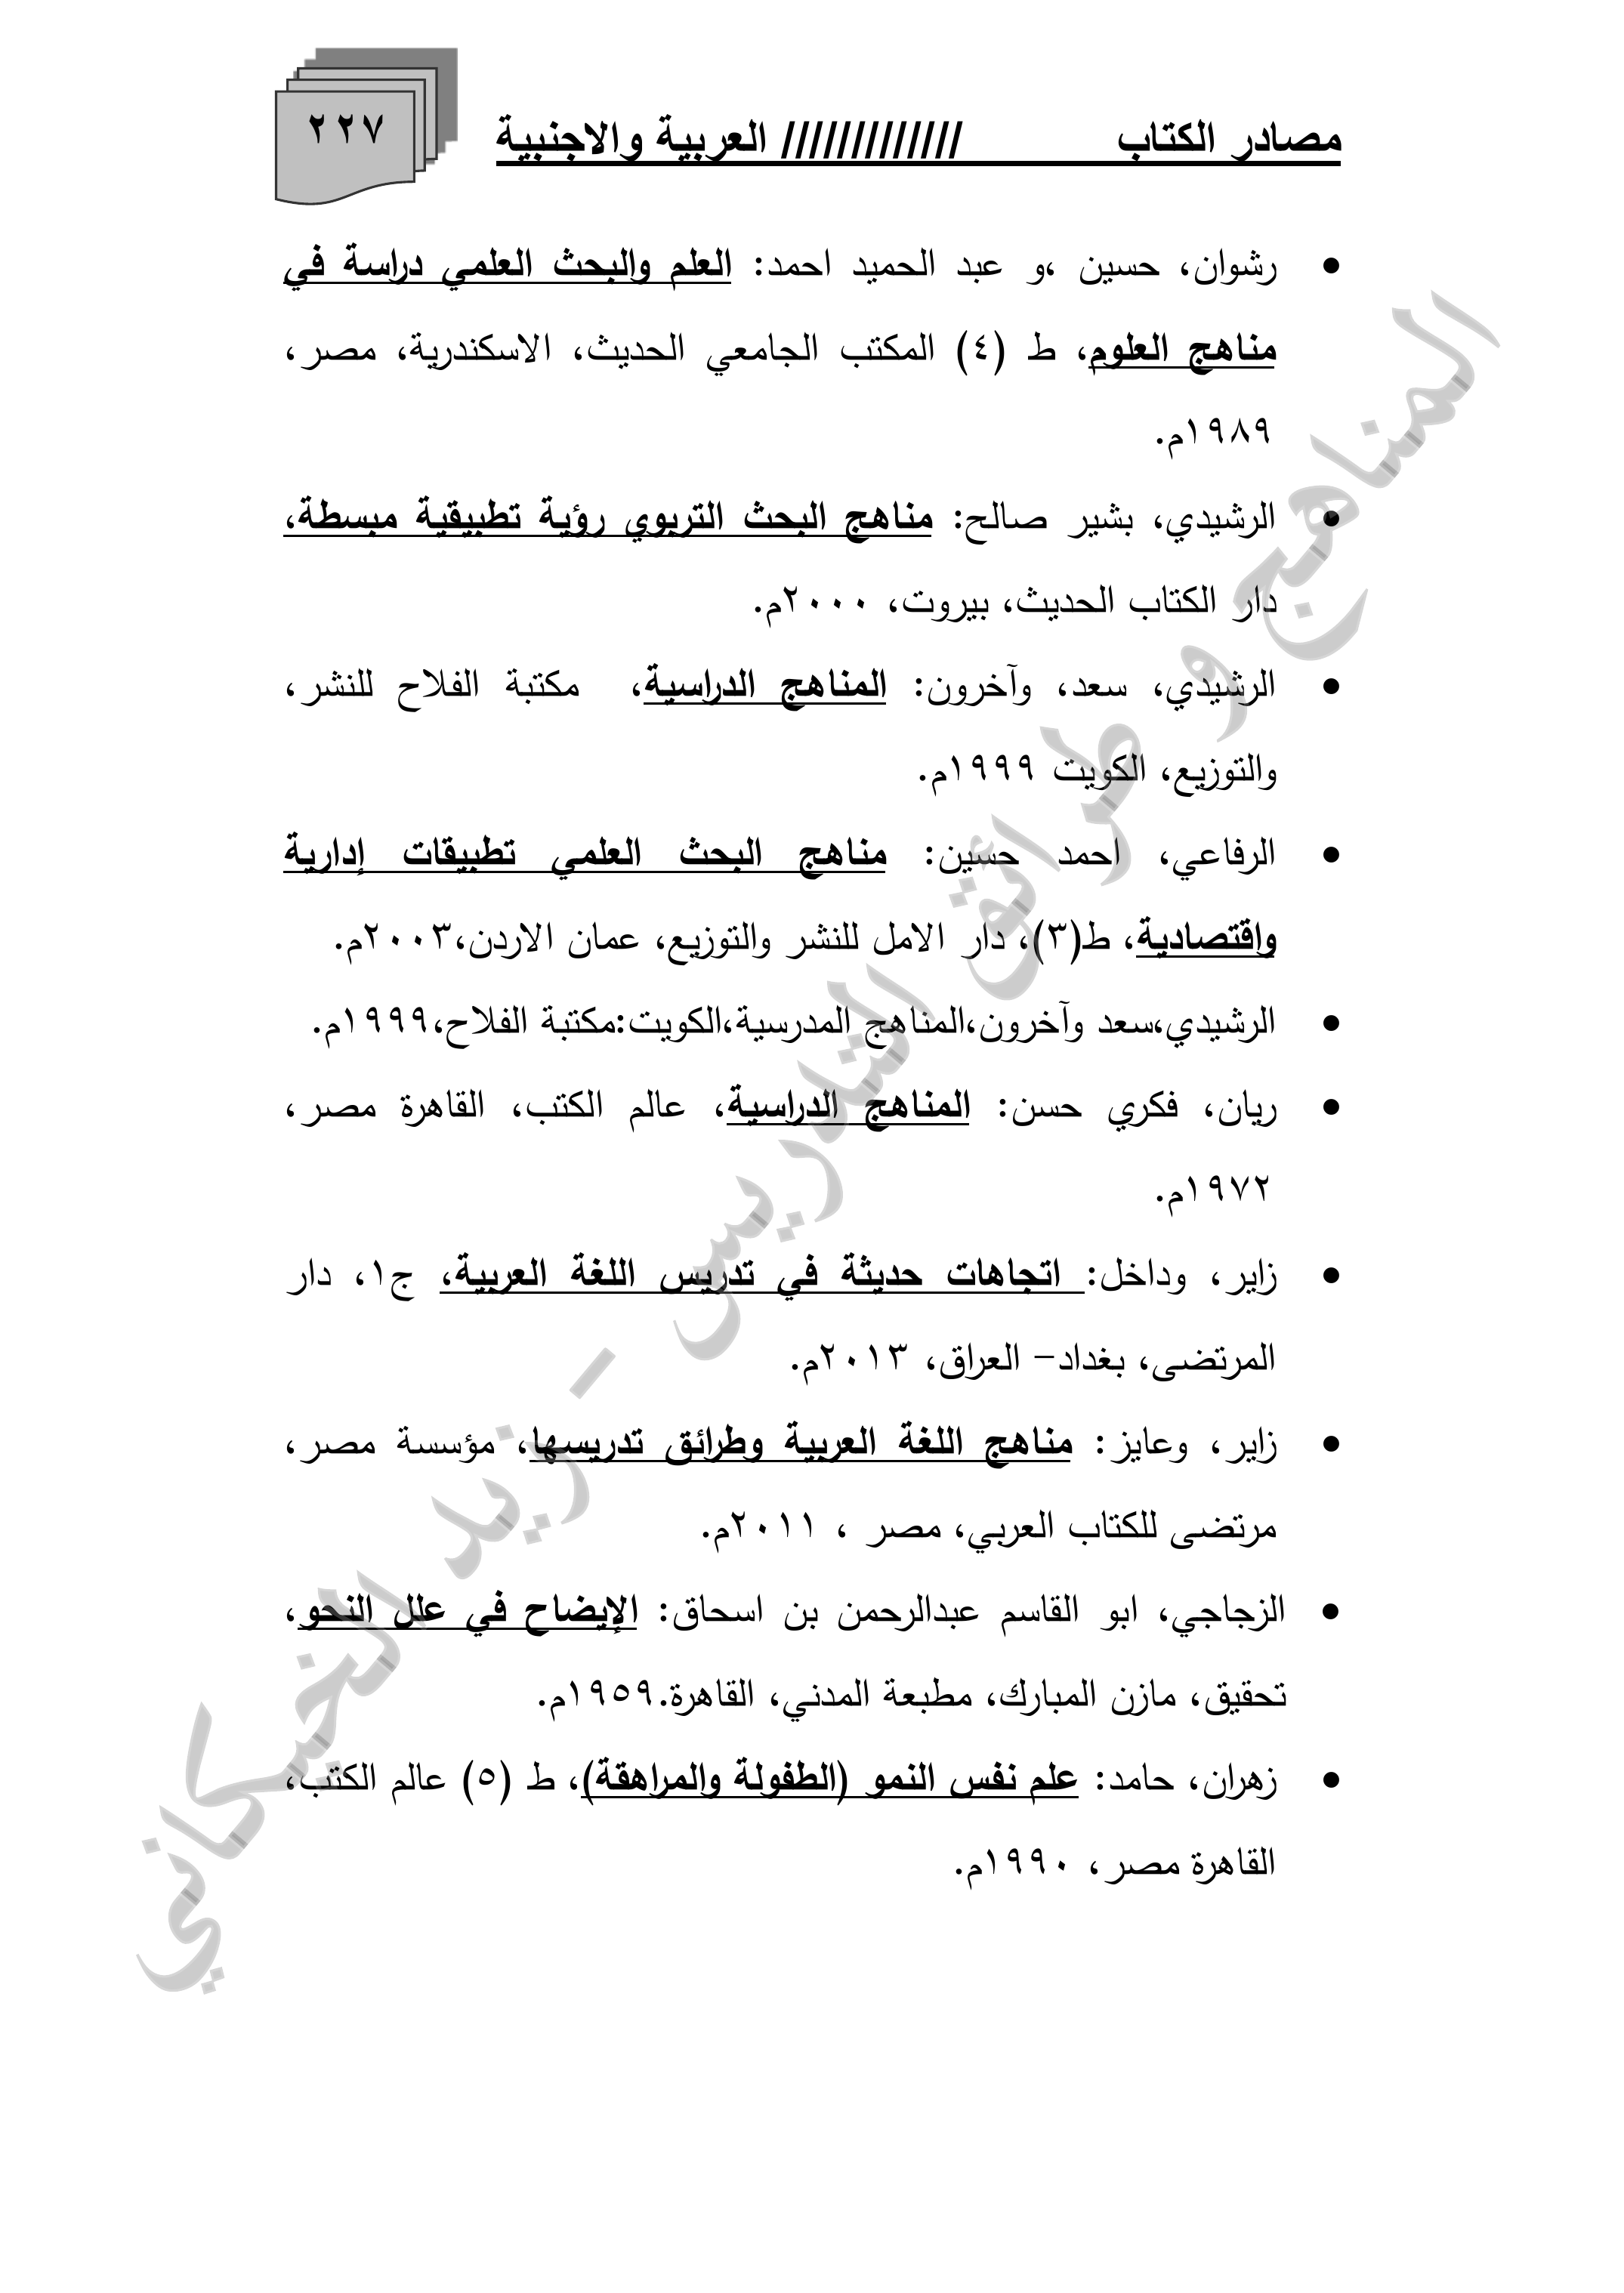 مصادر الكتاب ///////////// العربية والاجنبية
٢٢٧
• رشوان، حسين ،و عبد الحميد احمد: العلم والبحث العلمي دراسة في
مناهج العلوم، ط (٤) المكتب الجامعي الحديث، الاسكندرية، مصر،
١٩٨٩م.
• الرشيدي، بشير صالح: مناهج البحث التربوي رؤية تطبيقية مبسطة،
دار الكتاب الحديث، بيروت، ٢٠٠٠م.
• الرشيدي، سعد، وآخرون: المناهج الدراسية، مكتبة الفلاح للنشر،
والتوزيع، الكويت ١٩٩٩م.
• الرفاعي، احمد حسين: مناهج البحث العلمي تطبيقات إدارية
واقتصادية، ط(٣)، دار الامل للنشر والتوزيع، عمان الاردن،٢٠٠٣م.
• الرشيدي،سعد وآخرون،المناهج المدرسية،الكويت:مكتبة الفلاح،١٩٩٩م.
• ريان، فكري حسن: المناهج الدراسية، عالم الكتب، القاهرة مصر،
١٩٧٢م.
• زاير، وداخل: اتجاهات حديثة في تدريس اللغة العربية، ج١، دار
المرتضى، بغداد– العراق، ٢٠١٣م.
• زاير، وعايز: مناهج اللغة العربية وطرائق تدريسها، مؤسسة مصر،
مرتضى للكتاب العربي، مصر ، ٢٠١١م.
• الزجاجي، ابو القاسم عبدالرحمن بن اسحاق: الإيضاح في علل النحو،
تحقيق، مازن المبارك، مطبعة المدني، القاهرة.١٩٥٩م.
• زهران، حامد: علم نفس النمو (الطفولة والمراهقة)، ط (٥) عالم الكتب،
القاهرة مصر، ١٩٩٠م.
المناهج و طرائق التدريس - زيد الخيكاني